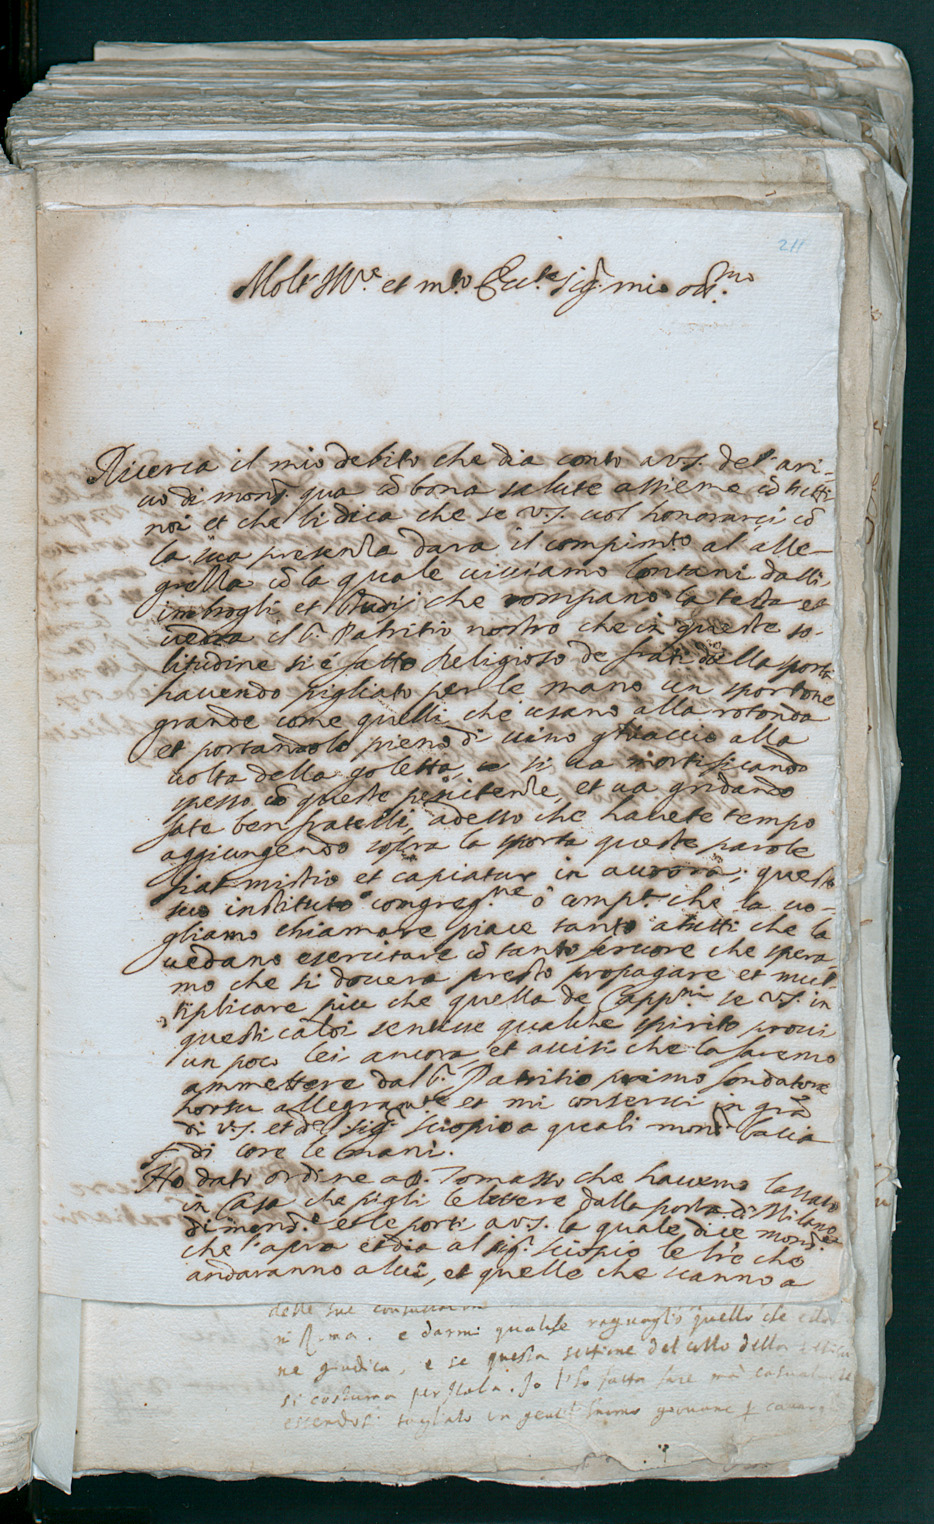 211
Molt Ill.re et m.to Ecc.te Sig.r mio oss.mo
Ricerca il mio debito che dia conto a V.S. del ari-
uo di mons.r qua cõ bona salute assieme cõ tutti
noi et che li dica che se V.S. uol honorarci cõ
la sua presenza dara il compim.to al alle-
grezza cõ la quale uiuiamo lontani dalli
imbrogli et studij che rompano la testa et
uedra il S.r Patritio nostro che in queste so-
litudine si è fatto Religioso de frati della sporta
hauendo pigliato per le mano un sportone
grande come quelli che usano alla rotonda
et portandolo pieno di uino ghiaccio alla
uolta della goletta, si ua mortificando
spesso cõ queste penitenze, et ua gridando
fate ben fratelli, adesso che hauete tempo
aggiungendo sopra la sporta queste parole
fiat mistio et capiatur in aurora; questo
suo instituto congreg.ne o comp.a che la uo-
gliamo chiamare piace tanto a tutti che la
uedano esercitare cõ tanto feruore che spera-
mo che si douera presto propagare et mul-
tiplicare piu che quella de Capp.ni se V.S. in
questi caldi sentisse qualche spirito proui
un poco lei ancora et auisi che la faremo
ammettere dal S.r Patritio primo fondatore
horsu allegram.te et mi conserui in gra
di V.S. et del sig.r Sciopio a quali mons.r bacia
di core le mani.
Ho dato ordine a Tomasso che hauemo lassato
in Casa che pigli le lettere dalla posta di Milano
di mons.r et le porti a V.S. la quale dice mons.r
che l'apra et dia al sig.r Sciopio le lr̃e che
andaranno a lui, et quelle che uanno a
delle sue
ni Roma. e darmi qualche ragguaglio quello che
ne giudica, e se questa settione del collo della
si costuma per Italia. Io l'ho fatta fare mà casualmente
essendosi tagliato un giouane